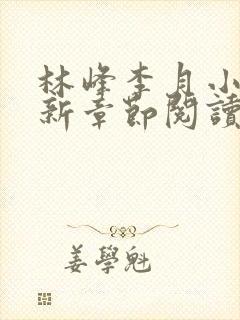 林峰李月小
新章節閱讀
姜學魁